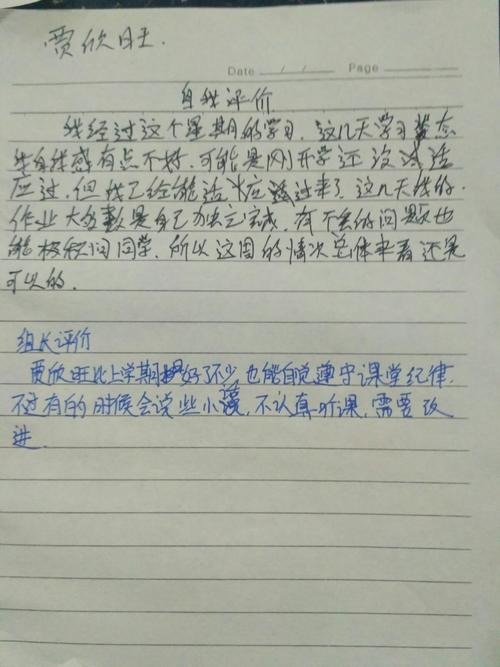 贾欣旺.
Date / / Page
自我评价
我经过这个星期的学习.这几天学习状态
我自我感有点不好.可能是刚开学还没适
应过.但我已经能适应过来了.这几天我的.
作业大多数是自己独立完成.有不会的问题也
能积极问同学.所以这周的情况总体来看还是
可以的.
组长评价
贾欣旺比上学期好了不少也能自觉遵守课堂纪律.
不过有的时候会说些小话,不认真听课,需要改
进.